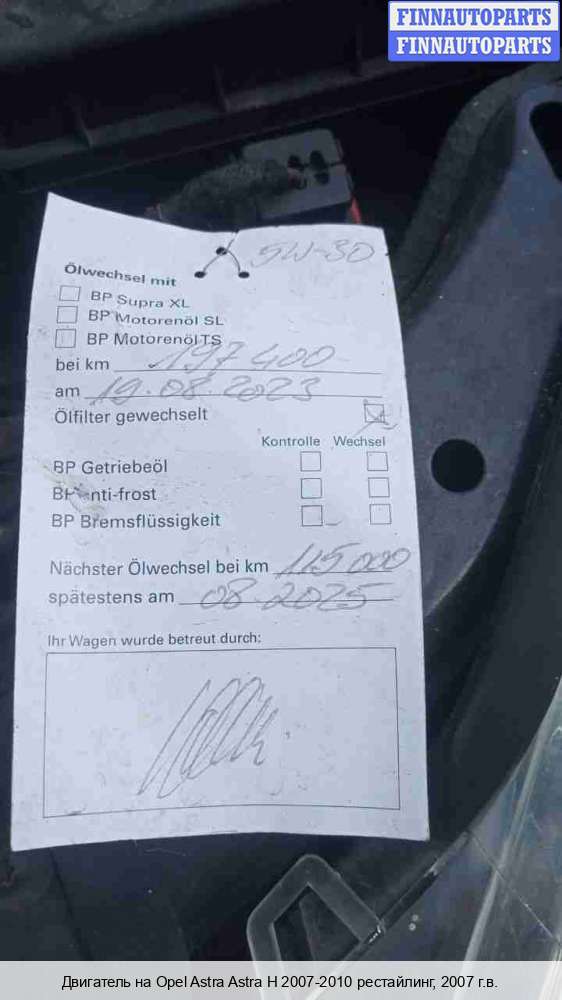 FINNAUTOPARTS
FINNAUTOPARTS
5W-30
Ölwechsel mit
BP Supra XL
BP Motorenöl SL
BP Motorenöl TS
bei km 197 400
am 19.08.2023
Ölfilter gewechselt
Kontrolle Wechsel
BP Getriebeöl
BP Anti-frost
BP Bremsflüssigkeit
Nächster Ölwechsel bei km 115 000
spätestens am 08.2025
Ihr Wagen wurde betreut durch:
Двигатель на Opel Astra Astra H 2007-2010 рестайлинг, 2007 г.в.